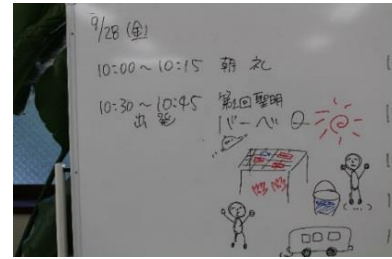 9/28(金)
10:00〜10:15 朝礼
10:30〜10:45 第2回聖明
出発 バーベQ
(...)